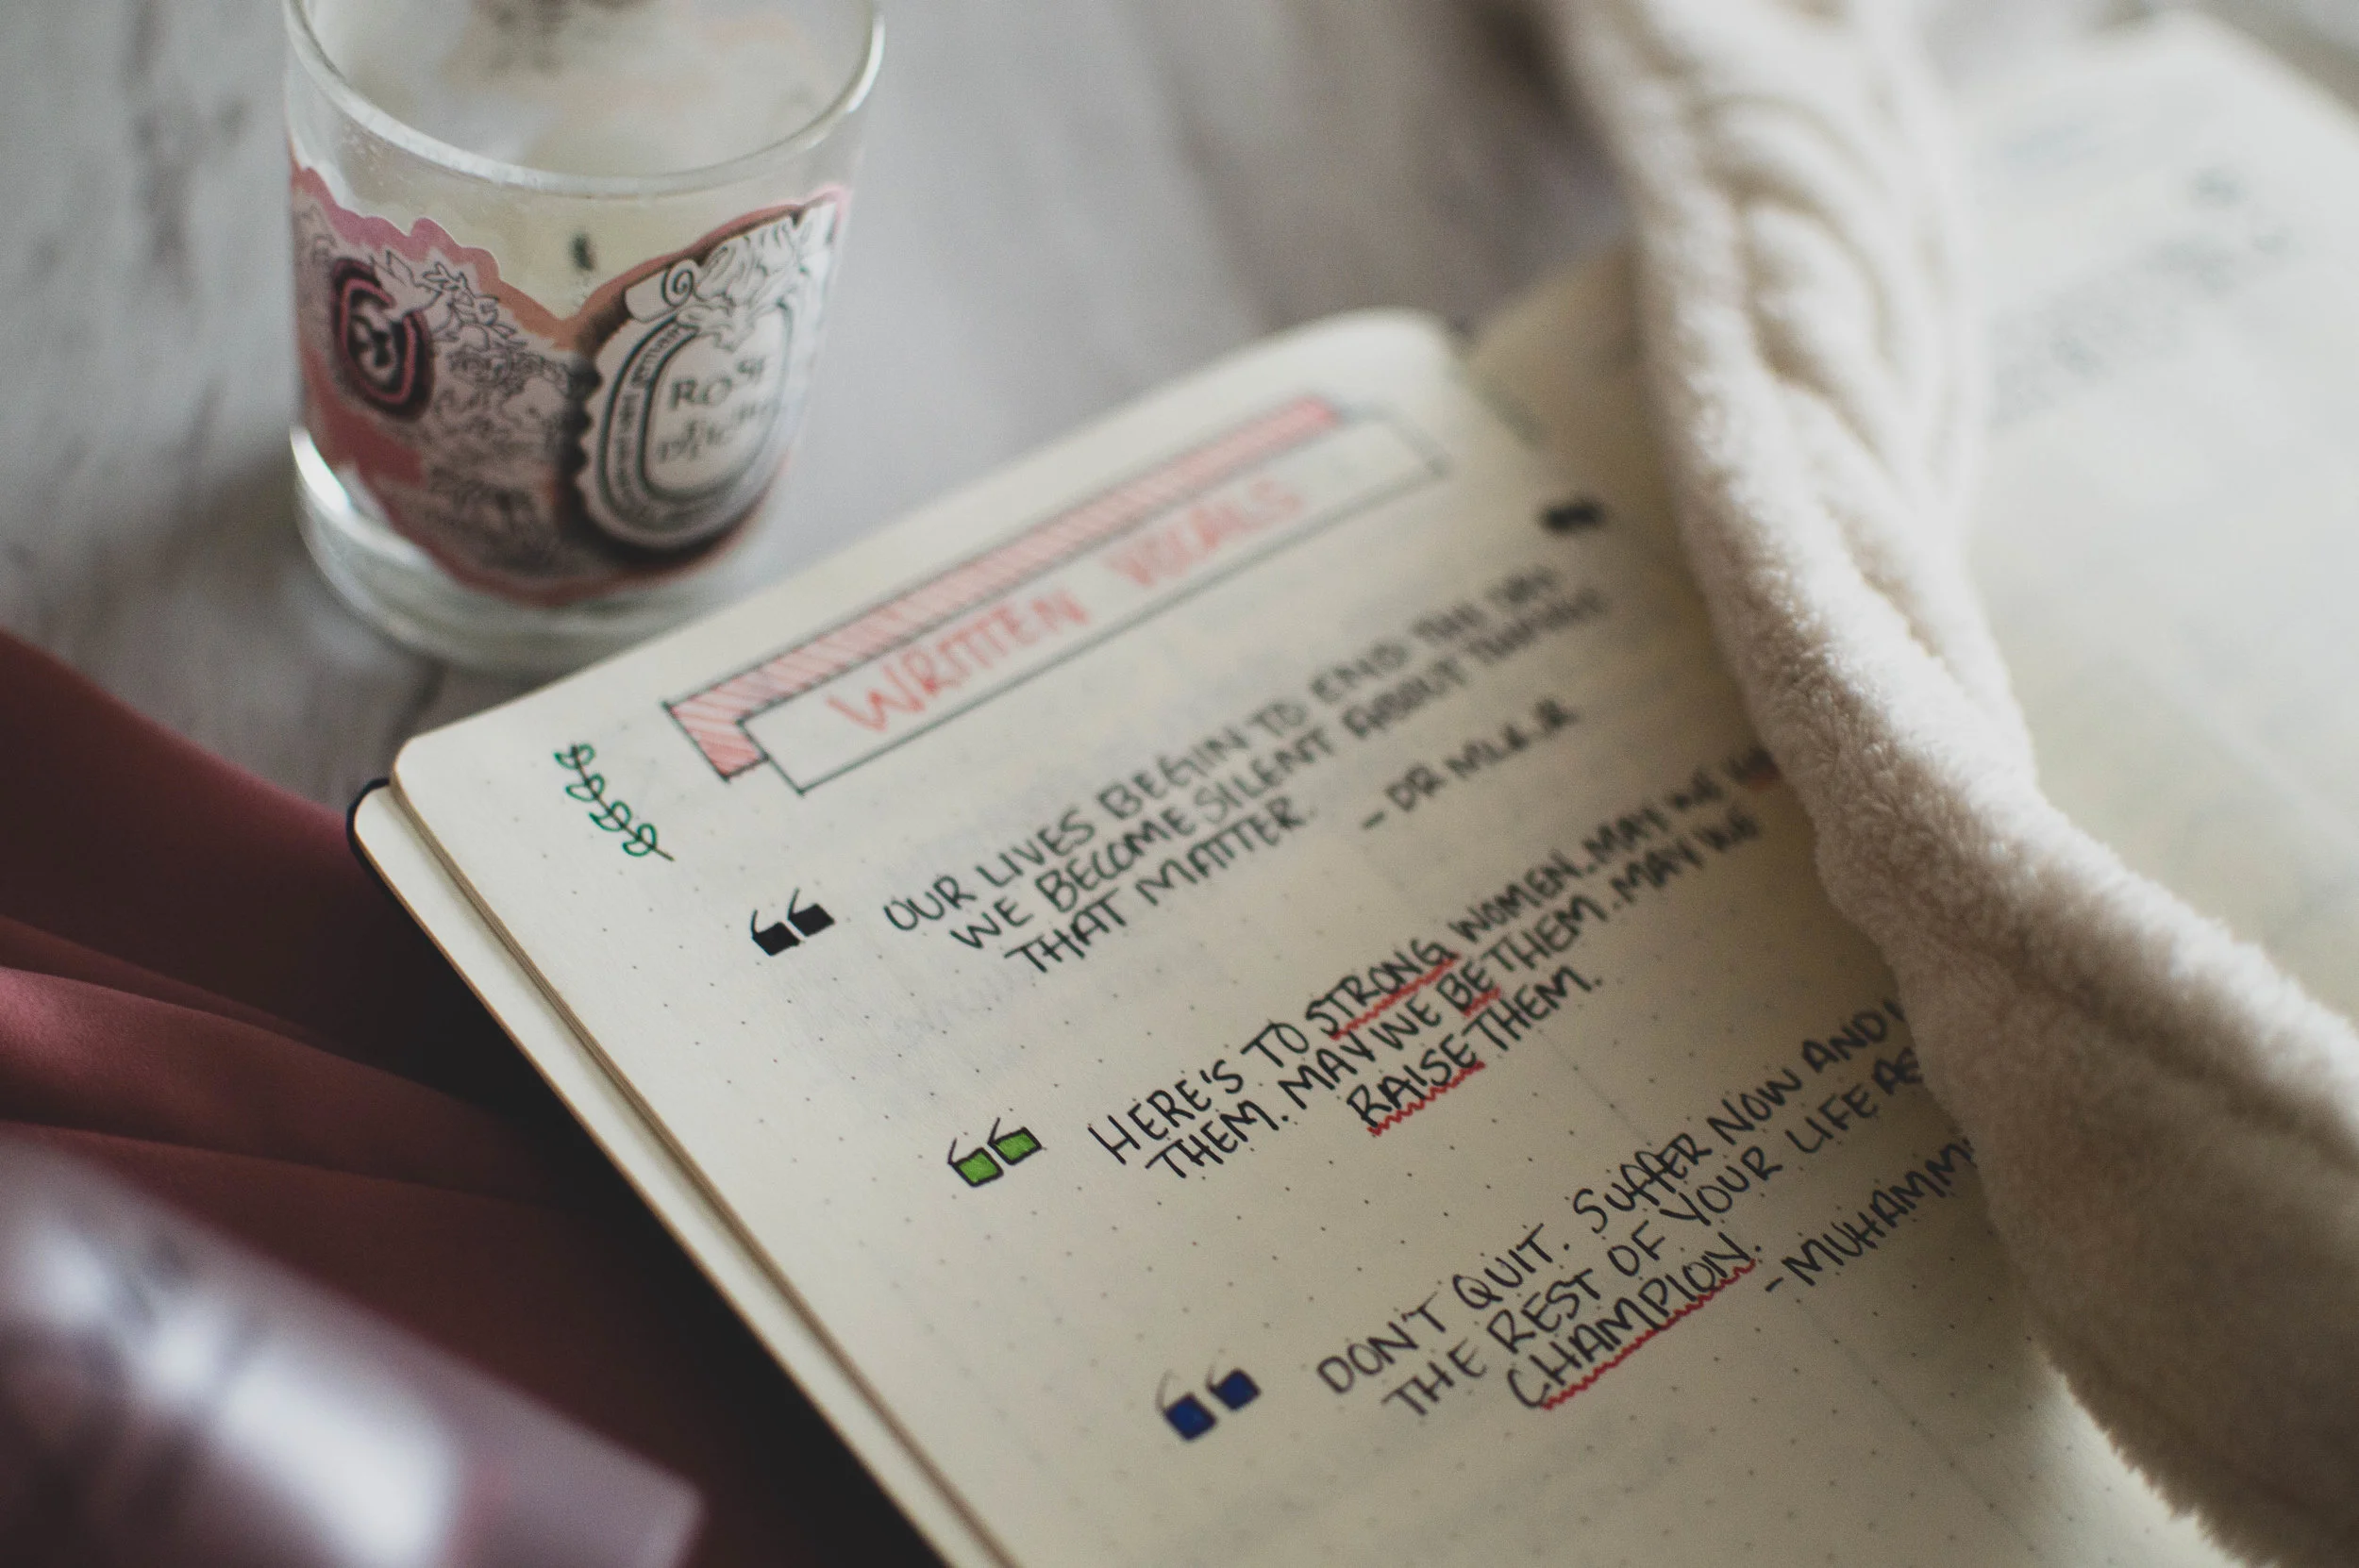 ROSE
WRITTEN VOCALS
OUR LIVES BEGIN TO END THE DAY
WE BECOME SILENT ABOUT THINGS
THAT MATTER.
- DR MLK JR
HERE'S TO STRONG WOMEN. MAY WE
THEM. MAY WE BE THEM. MAY WE
RAISE THEM.
DON'T QUIT. SUFFER NOW AND
THE REST OF YOUR LIFE AS
CHAMPION.
- MUHAMM